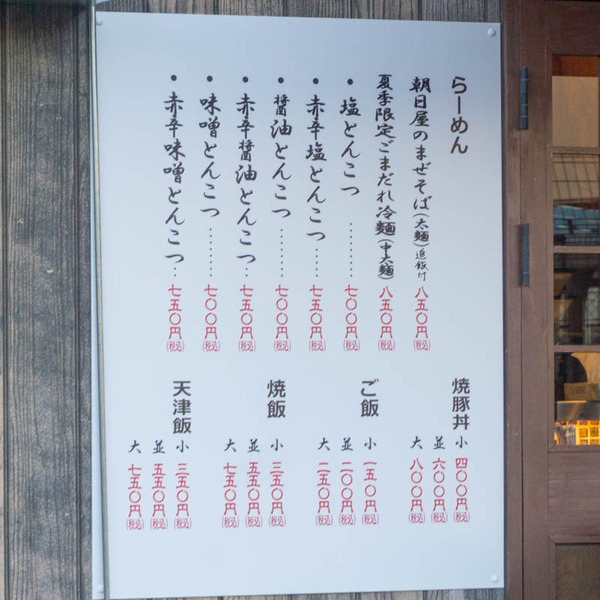 らーめん
朝日屋のまぜそば(太麺)追飯付 八五〇円(税込)
夏季限定ごまだれ冷麺(中太麺) 八五〇円(税込)
・塩とんこつ………七〇〇円(税込)
・赤辛塩とんこつ…七五〇円(税込)
・醤油とんこつ………七〇〇円(税込)
・赤辛醤油とんこつ…七五〇円(税込)
・味噌とんこつ………七〇〇円(税込)
・赤辛味噌とんこつ…七五〇円(税込)
焼豚丼
小 四〇〇円(税込)
並 六〇〇円(税込)
大 八〇〇円(税込)
ご飯
小 一五〇円(税込)
並 二〇〇円(税込)
大 二五〇円(税込)
焼飯
小 三五〇円(税込)
並 五五〇円(税込)
大 七五〇円(税込)
天津飯
小 三五〇円(税込)
並 五五〇円(税込)
大 七五〇円(税込)